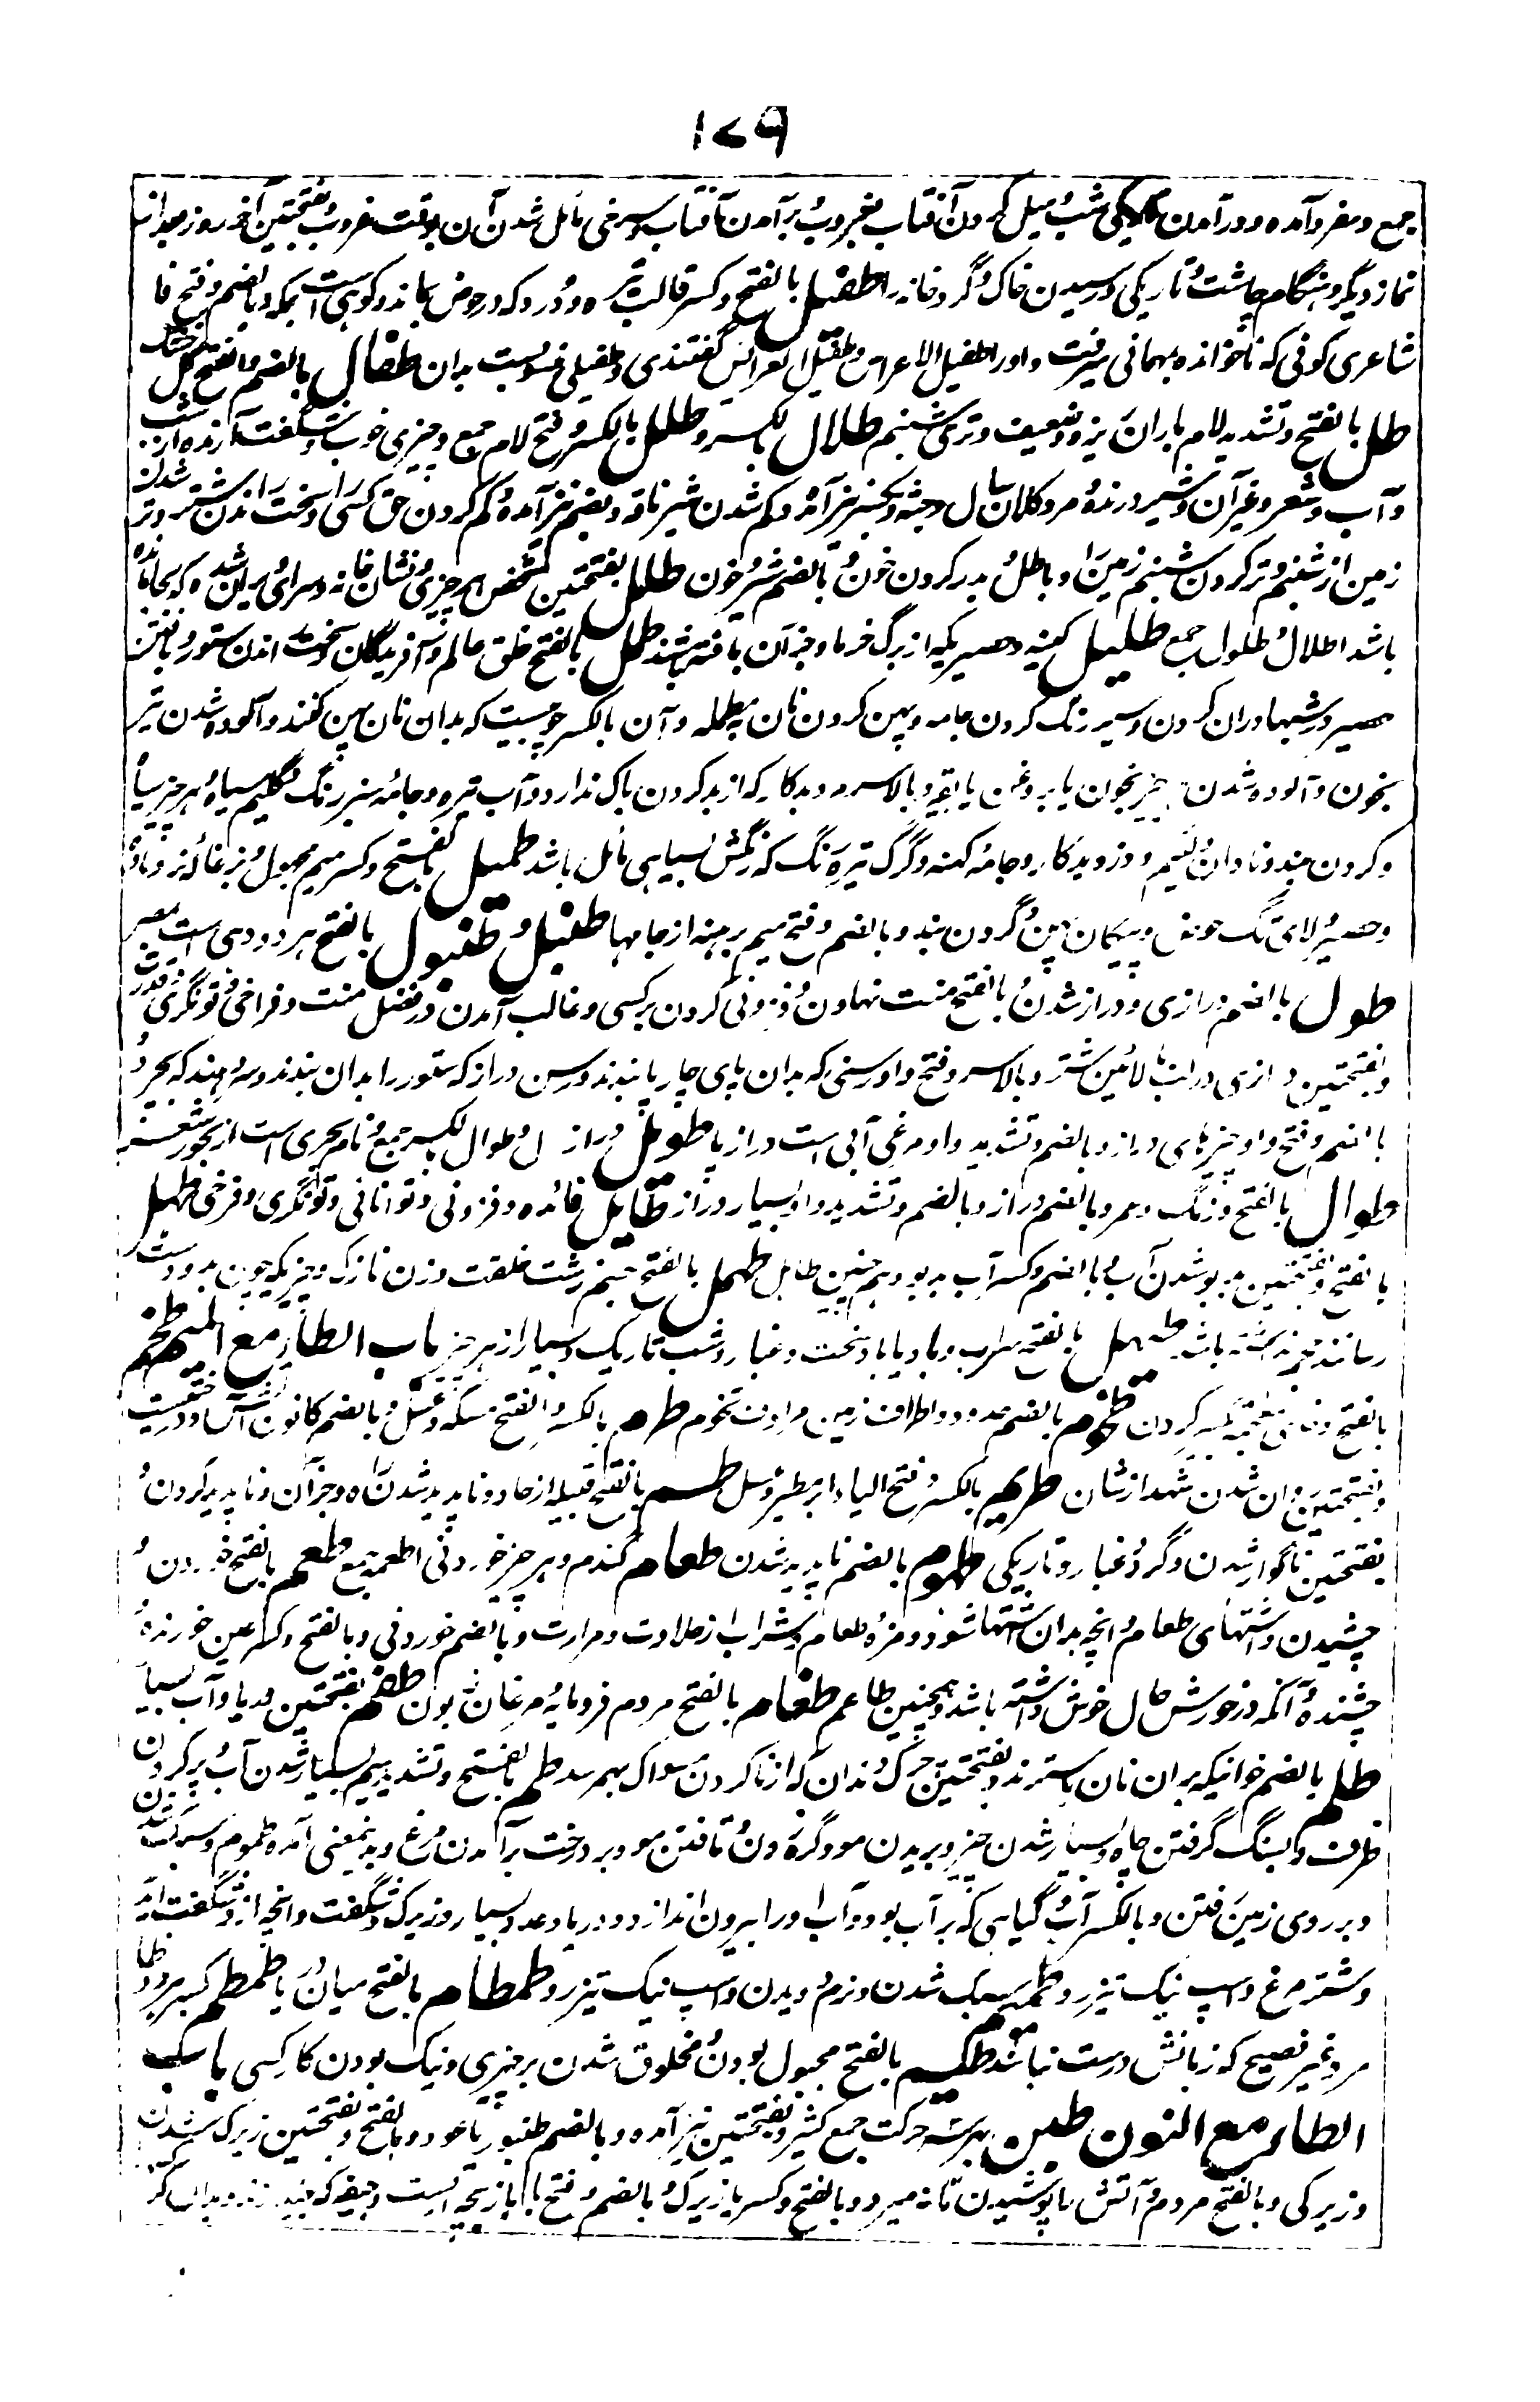 ۱۷۹
جمع و سفر و آمده و در آمدن تاریکی شب و میل کردن آفتاب بغروب و برآمدن آفتاب و سرخی مائل شدن آن بوقت غروب و بفتحتین آخر روز بعد از
نماز دیگر و هنگام چاشت و تاریکی و رسیدن خاک و گرد خانه را طفیل بالفتح و کسر فا و درد که در حوض بماند و کوهی است بمکه و بالضم و فتح فا
شاعری کوفی که ناخوانده بمهمانی میرفت و او را طفیل الاعراس و طفیل العرائس گفتندی و طفیلی منسوبست بدان طفال بالضم و بالفتح گل خشک
طل بالفتح و تشدید لام باران ریزه و ضعیف و تری شبنم طلال بالکسر و طلل بالکسر و فتح لام جمع و چیزی خوب و شگفت آرنده از شب
و آب و شعر و غیر آن و شیر درنده و مرد کلان سال و بکسر نیز آمده و کم شدن شیر ناقه و بضم نیز آمده و کم کردن حق کسی را و سخت راندن شتر و تر شدن
زمین از شبنم و تر کردن شبنم زمین را و باطل و هدر کردن خون و بالضم شیر و خون طلل بفتحتین شخص هر چیزی و نشان خانه و سرای ویران شده که بجا مانده
باشد اطلال و طلول جمع طلیل کهنه و حصیریکه از برگ خرما و جز آن بافته باشند طمل بالفتح خلق عالم و آفریدگان و سخت راندن ستور و بافتن
حصیر و رشتها در آن کردن و سیر رنگ کردن جامه و پهن کردن نان بمطمله و آن بالکسر چوبیست که بدان نان پهن کنند و آلوده شدن تیر
بخون و آلوده شدن چیز بخون یا بروغن یا بقیر و بالکسر مرد بدکار که از بد کردن باک ندارد و آب تیره و جامه سبز رنگ و گلیم سیاه و هر چیز سیاه
و کردن بند و نادان و لئیم و دزد و بدکار و جامه کهنه و گرگ تیره رنگ که رنگش بسیاهی مائل باشد طمیل بالفتح و کسر میم مجهول و بزغاله نر و ماده
و حصیر و لای تگ حوض و پیکان پهن و گردن بند و بالضم و فتح میم برهنه از جامها طنبل و طنبول بالفتح هر دو دهی است بمصر
طول بالضم درازی و دراز شدن و بالفتح منت نهادن و فزونی کردن بر کسی و غالب آمدن در فضل و منت و فراخی و تونگری و قدرت
و بفتحتین درازی در لب بالائین شتر و بالکسر و فتح واو رسنی که بدان پای چارپا بندند و رسن دراز که ستور را بدان بندند و سر دهند که بچرد
بالضم و فتح واو چیزهای دراز و بالضم و تشدید واو مرغی آبی است دراز پا طویل دراز طوال بالکسر جمع و نام بحری است از بحور شعر
طوال بالفتح درنگ و عمر و بالضم دراز و بالضم و تشدید واو بسیار دراز طایل فائده و فزونی و توانائی و توانگری و فراخی طهل
بالفتح و بفتحتین بدبو شدن آب و بالضم و کسر آب بدبو و همچنین طاهل طهمل بالفتح جسیم زشت خلقت و زن نازک و چیزیکه چون بدو دست
رسانند باشد طیسل بالفتح سراب و باد یا باد سخت و غبار و شب تاریک و بسیار از هر چیز باب الطاء مع المیم طخم
بالفتح تکبر کردن طخوم بالضم حدود و اطراف زمین مرادف تخوم طرم بالکسر و الفتح مسکه و عسل و بالضم کانون آتش و درختیست
و بفتحتین روان شدن شهد از شان طریم بالکسر و فتح الیاء ابر سطبر و عسل طسم بالفتح قبیله از عاد و ناپدید شدن راه و جز آن و ناپدید کردن و
بفتحتین ناگوار شدن و گرد و غبار و تاریکی طسوم بالضم ناپدید شدن طعام گندم و هر چیز خوردنی اطعمة جمع طعم بالفتح خوردن و
چشیدن و اشتهای طعام و آنچه بدان اشتها شود و مزه طعام و شراب از حلاوت و مرارت و بالضم خوردنی و بالفتح و کسر عین خورنده و
چشنده و آنکه در خورش حال خوش داشته باشد و همچنین طاعم طغام بالفتح مردم فرومایه و مرغان زبون طغم بفتحتین دریا و آب بسیار
طلم بالضم خوانیکه بر آن نان گسترند و بفتحتین چرک دندان که از ناکردن مسواک بهم رسد طم بالفتح و تشدید میم بسیار شدن آب و پر کردن
ظرف و بسنگ گرفتن چاه و بسیار شدن چیز و بریدن مو و گره زدن و تافتن مو و بر درخت برآمدن مرغ و بدینمعنی آمده طموم و سبک شدن
و بر روی زمین رفتن و بالکسر آب و گیاهی که بر آب بود و آب او را بیرون اندازد و دریا و عدد بسیار و زیرک و شگفت و آنچه از و شگفت آید
و شتر مرغ و اسپ نیک تیز رو طمیم سبک شدن و نرم دویدن و اسپ نیک تیز رو طمطام بالفتح میان دریا طمطم بکسر هر دو طا
مرد غیر فصیح که زبانش درست نباشد طیم بالفتح مجبول بودن و مخلوق شدن بر چیزی و نیک بودن کار کسی باب
الطاء مع النون طبن بهر سه حرکت جمع کثیر و بفتحتین نیز آمده و بالضم طنبور یا عود و بالفتح و بفتحتین زیرک شدن
و زیرکی و بالفتح مردم و آتش را پوشیدن تا نه میرد و بالفتح و کسر با زیرک و بالضم و فتح با بازیچه ایست و جیفه که نهند